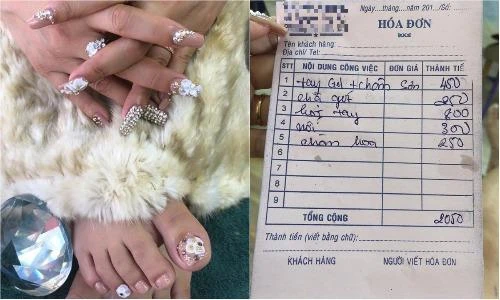 Ngày.....tháng.....năm 201.../Số:......
HÓA ĐƠN
Tên khách hàng:
Địa chỉ/ Tel:
STT NỘI DUNG CÔNG VIỆC ĐƠN GIÁ THÀNH TIỀN
1 tay Gel + chăm 450
2 250
3 tay 800
4 nối 300
5 chăm hoa 250
6
7
8
9
TỔNG CỘNG 2050
Thành tiền (viết bằng chữ):
KHÁCH HÀNG NGƯỜI VIẾT HÓA ĐƠN